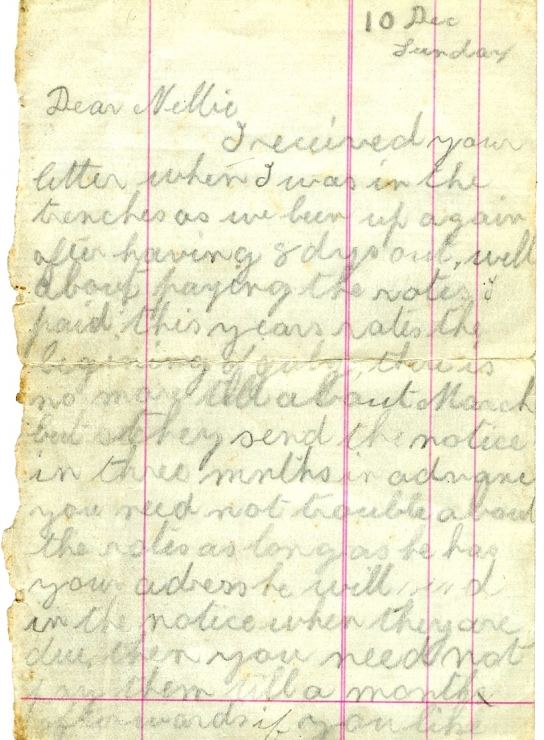 10 Dec
Sunday
Dear Nellie
I received your
letter when I was in the
trenches as we been up again
after having 8 dys out, well
about paying the rates I
paid this years rates the
begining of July, there is
no more till about March
but they send the notice
in three mnths in advance
you need not trouble about
the rates as long as he has
your adress he will send
in the notice when they are
due, then you need not
pay them till a month
afterwards if you like